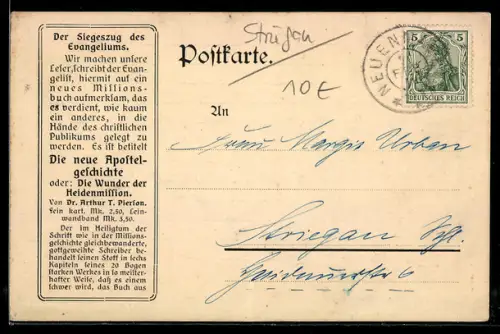 Der Siegeszug des
Evangeliums.
Wir machen unsere
Leser, schreibt der Evan-
gelist, hiermit auf ein
neues Missions-
buch aufmerksam, das
es verdient, wie kaum
ein anderes, in die
Hände des christlichen
Publikums gelegt zu
werden. Es ist betitelt
Die neue Apostel-
geschichte
oder: Die Wunder der
Heidenmission.
Von Dr. Arthur T. Pierson.
Fein kart. Mk. 2,50, Lein-
wandband Mk. 3,50.
Der im Heiligtum der
Schrift wie in der Missions-
geschichte gleichbewanderte,
gottgeweihte Schreiber be-
handelt seinen Stoff in sechs
Kapiteln seines 20 Bogen
starken Werkes in so meister-
hafter Weise, daß es einem
schwer wird, das Buch aus
Striegau
Postkarte.
10€
5 5
DEUTSCHES REICH
NEUEN
An
Frau Margis Urban
Striegau Schl.